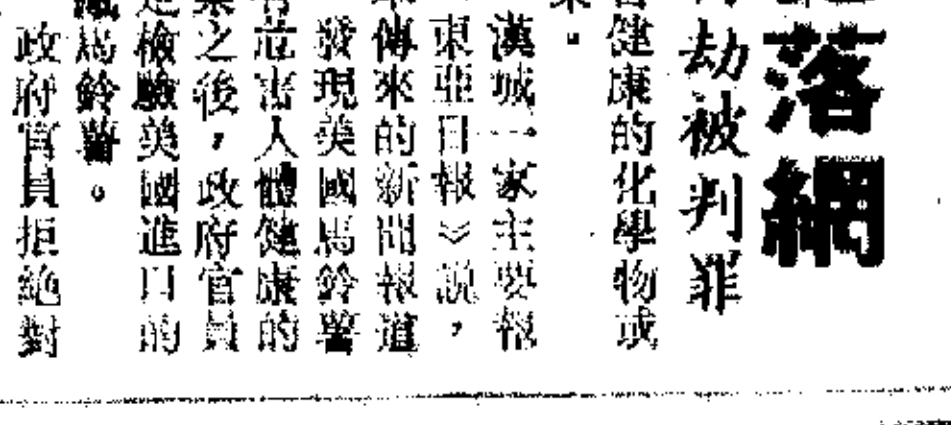 落網
劫被判罪
健康的化學物或
漢城一家主要報
東亞日報》説,
傳來的新聞報道
發現美國馬鈴薯
危害人體健康的
之後,政府官員
檢驗美國進口的
馬鈴薯。
政府官員拒絶對